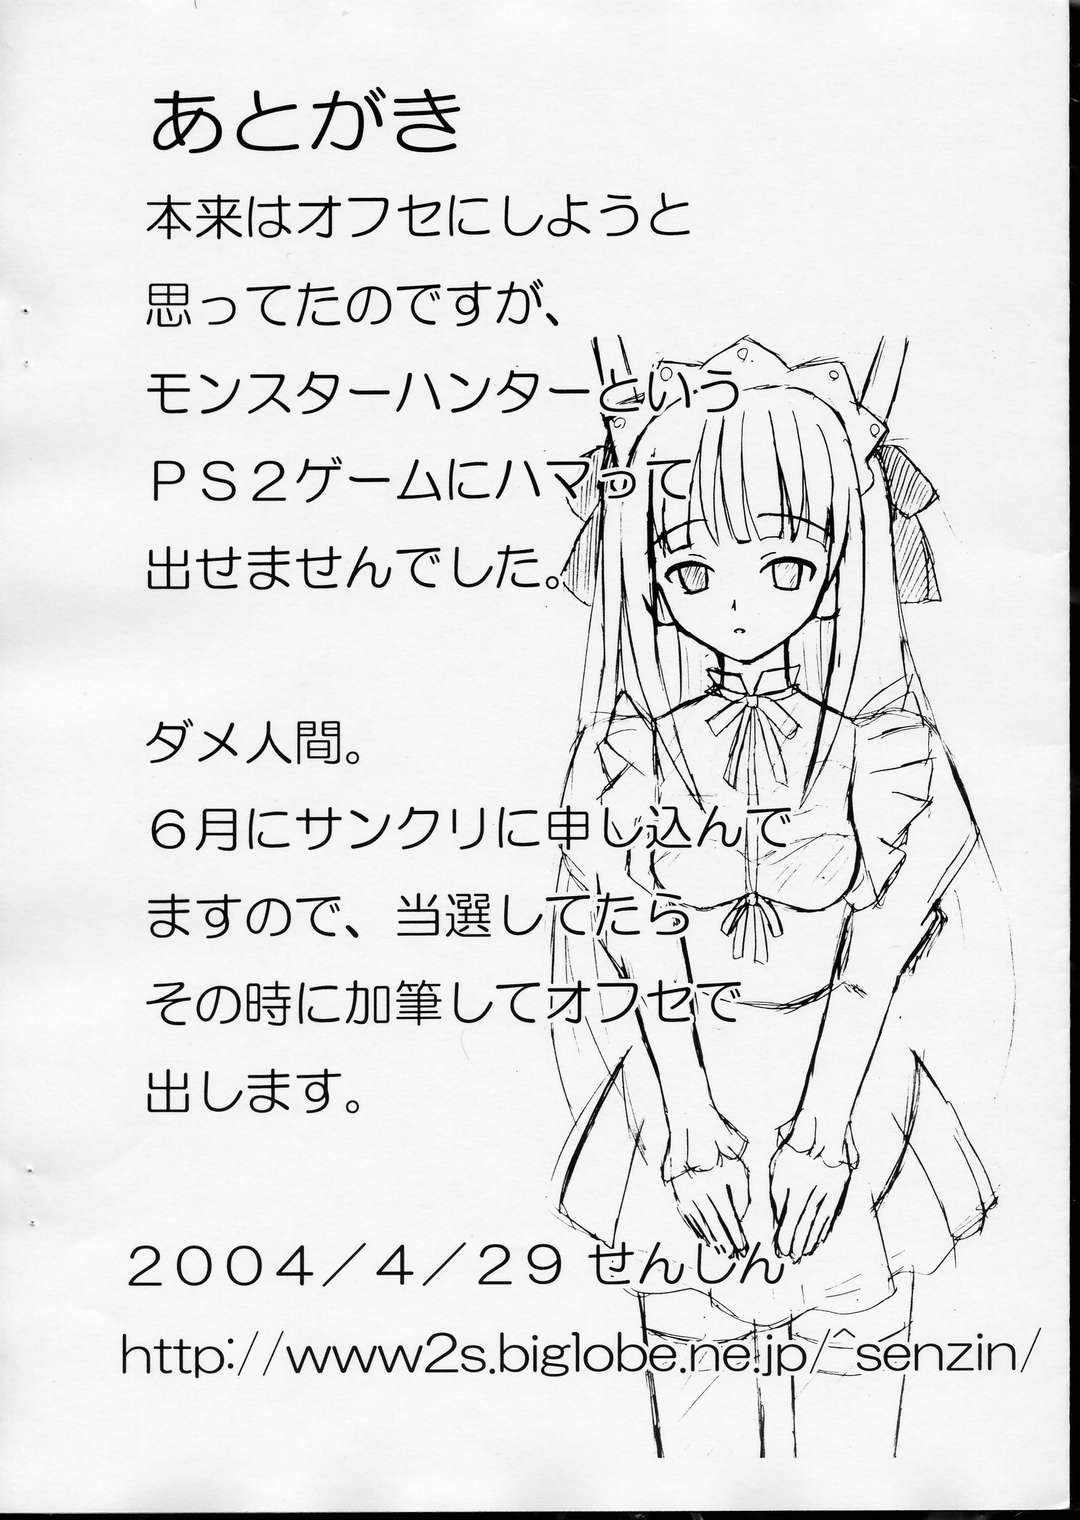 あとがき
本来はオフセにしようと
思ってたのですが、
モンスターハンターという
ＰＳ２ゲームにハマって
出せませんでした。
ダメ人間。
６月にサンクリに申し込んで
ますので、当選してたら
その時に加筆してオフセで
出します。
２００４／４／２９ せんじん
http://www2s.biglobe.ne.jp/^senzin/